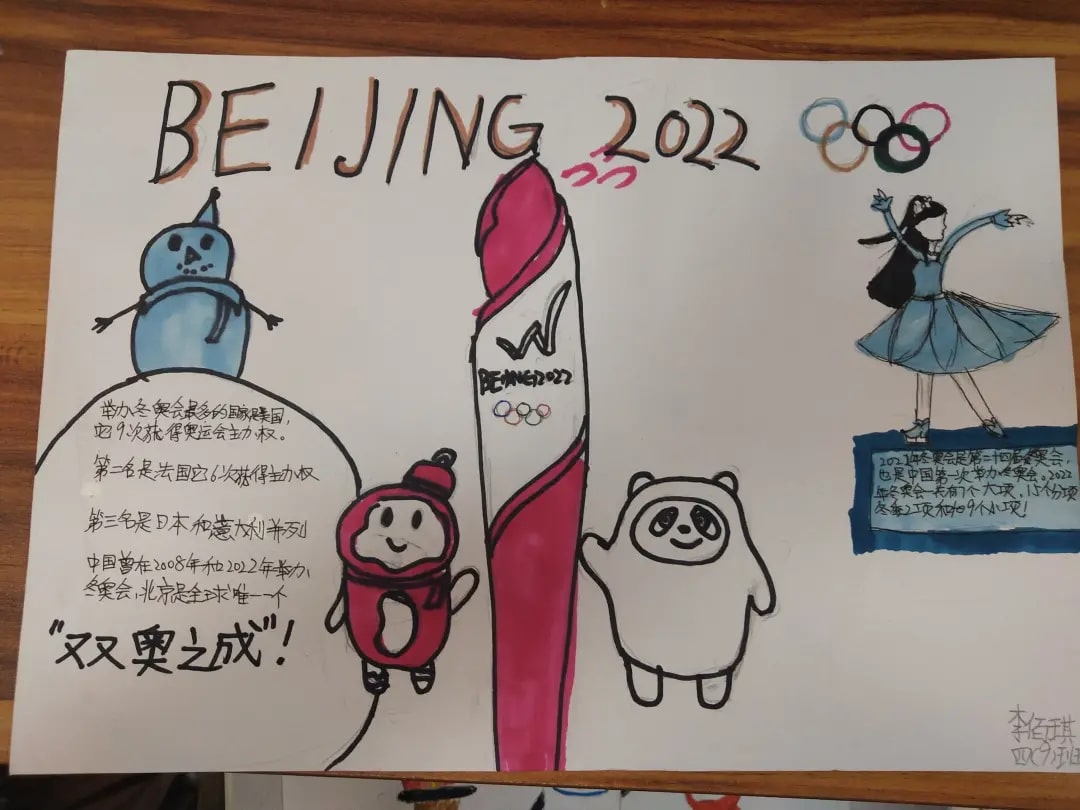 BEIJING 2022
举办冬奥会最多的国家是美国,
它9次获得奥运会主办权。
第二名是法国它6次获得主办权
第三名是日本和意大利并列
中国曾在2008年和2022年举办
冬奥会,北京是全球唯一一个
"双奥之成"!
BEIJING2022
2022年冬奥会是第二十四届冬奥会,
也是中国第一次举办冬奥会。2022
年冬奥会一共有7个大项,15个分项
李佰琪
四(9)班